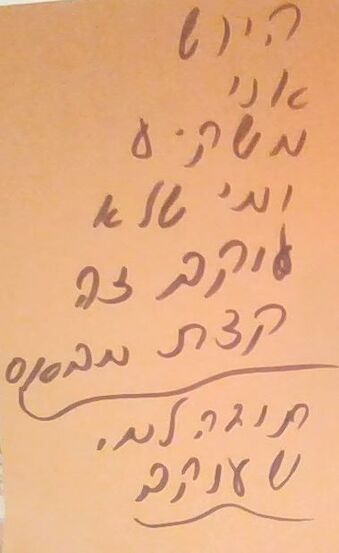 היוש
אני
משקיע
ומי שלא
עוקב זה
קצת מבאס
תודה למי
שעוקב